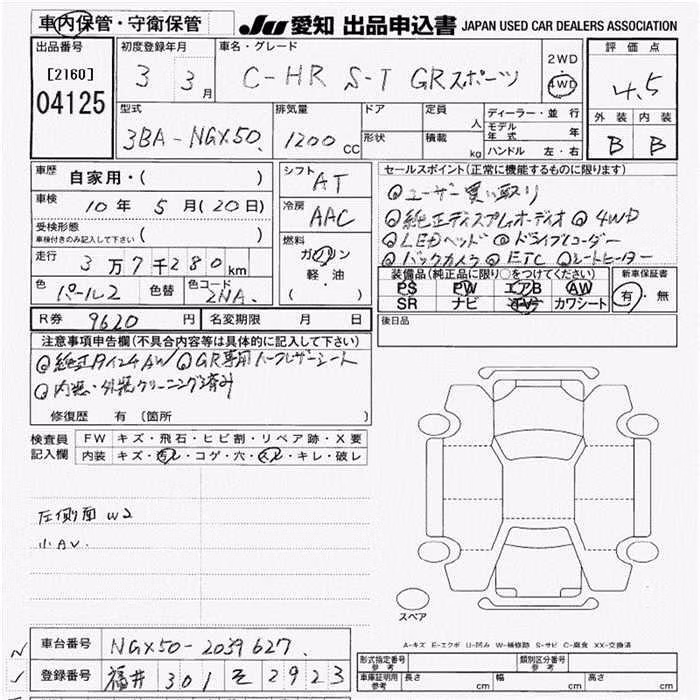 車内保管・守衛保管 JU 愛知 出品申込書 JAPAN USED CAR DEALERS ASSOCIATION
出品番号 初度登録年月 車名・グレード 評価点
[2160] 3 3月 C-HR S-T GRスポーツ 2WD 4WD 4.5
04125
型式 排気量 ドア 定員 人 ディーラー・並行 外装 内装
3BA-NGX50. 1200cc 形状 積載 kg モデル年式 年 B B
ハンドル 左・右
車歴 自家用・( )
車検 10年 5月(20日)
受検形態
車検付きのみ記入して下さい ( )
走行 3万7千280km
色 パール2 色替 色コード 2NA.
シフト AT
冷房 AAC
燃料 ガソリン
軽・油
( )
セールスポイント(正常に機能するものに限ります)
◎ユーザー買い取り
◎純正ディスプレイオーディオ ◎4WD
◎LEDヘッド ◎ドライブレコーダー
◎バックカメラ ◎ETC ◎シートヒーター
装備品(純正品に限り○をつけてください) 新車保証書
PS PW エアB AW 有・無
SR ナビ TV カワシート
R券 9620円 名変期限 月 日 後日品
注意事項申告欄(不具合内容等は具体的に記入して下さい)
◎純正 AW ◎GR専用ハーフレザーシート
◎内装・外装クリーニング済み
修復歴 有 [箇所 ]
検査員記入欄 FW キズ・飛石・ヒビ割・リペア跡・X要
内装 キズ・汚レ・コゲ・穴・スレ・キレ・破レ
左側面 W2
小AV.
スペア
A-キズ E-エクボ U-凹み W-補修跡 S-サビ C-腐食 XX-交換済
車台番号 NGX50-2039627.
登録番号 福井 301 そ 2923
型式指定番号 参考 類別区分番号 参考
車庫証明用 参考 長さ cm 幅 cm 高さ cm